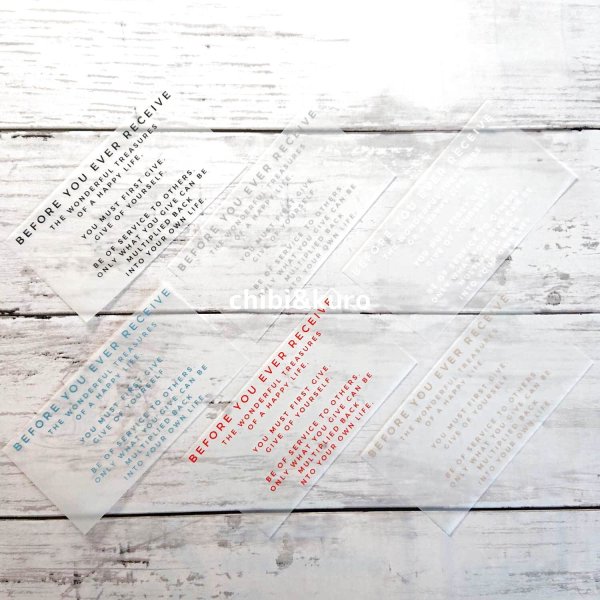 BEFORE YOU EVER RECEIVE
THE WONDERFUL TREASURES
OF A HAPPY LIFE.
YOU MUST FIRST GIVE.
GIVE OF YOURSELF.
BE OF SERVICE TO OTHERS.
ONLY WHAT YOU GIVE CAN BE
MULTIPLIED BACK
INTO YOUR OWN LIFE.
BEFORE YOU EVER RECEIVE
THE WONDERFUL TREASURES
OF A HAPPY LIFE.
YOU MUST FIRST GIVE.
GIVE OF YOURSELF.
BE OF SERVICE TO OTHERS.
ONLY WHAT YOU GIVE CAN BE
MULTIPLIED BACK
INTO YOUR OWN LIFE.
RECEIVE
chibi&kuro
BEFORE YOU EVER RECEIVE
THE WONDERFUL TREASURES
OF A HAPPY LIFE.
YOU MUST FIRST GIVE.
GIVE OF YOURSELF.
BE OF SERVICE TO OTHERS.
ONLY WHAT YOU GIVE CAN BE
MULTIPLIED BACK
INTO YOUR OWN LIFE.
BEFORE YOU EVER RECEIVE
THE WONDERFUL TREASURES
OF A HAPPY LIFE.
YOU MUST FIRST GIVE.
GIVE OF YOURSELF.
BE OF SERVICE TO OTHERS.
ONLY WHAT YOU GIVE CAN BE
MULTIPLIED BACK
INTO YOUR OWN LIFE.
BEFORE YOU EVER RECEIVE
THE WONDERFUL TREASURES
OF A HAPPY LIFE.
YOU MUST FIRST GIVE.
GIVE OF YOURSELF.
BE OF SERVICE TO OTHERS.
ONLY WHAT YOU GIVE CAN BE
MULTIPLIED BACK
INTO YOUR OWN LIFE.